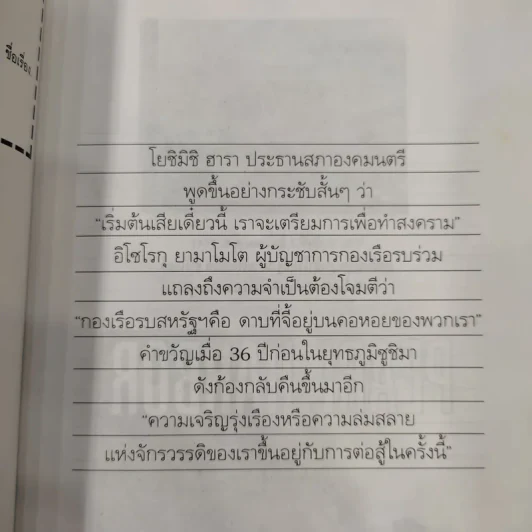 ชื่อเรื่อง
โยชิมิชิ ฮารา ประธานสภาองคมนตรี
พูดขึ้นอย่างกระชับสั้นๆ ว่า
“เริ่มต้นเสียเดี๋ยวนี้ เราจะเตรียมการเพื่อทำสงคราม”
อิโซโรกุ ยามาโมโต ผู้บัญชาการกองเรือรบร่วม
แถลงถึงความจำเป็นต้องโจมตีว่า
“กองเรือรบสหรัฐฯคือ ดาบที่จี้อยู่บนคอหอยของพวกเรา”
คำขวัญเมื่อ 36 ปีก่อนในยุทธภูมิชูชิมา
ดังก้องกลับคืนขึ้นมาอีก
“ความเจริญรุ่งเรืองหรือความล่มสลาย
แห่งจักรวรรดิของเราขึ้นอยู่กับการต่อสู้ในครั้งนี้”